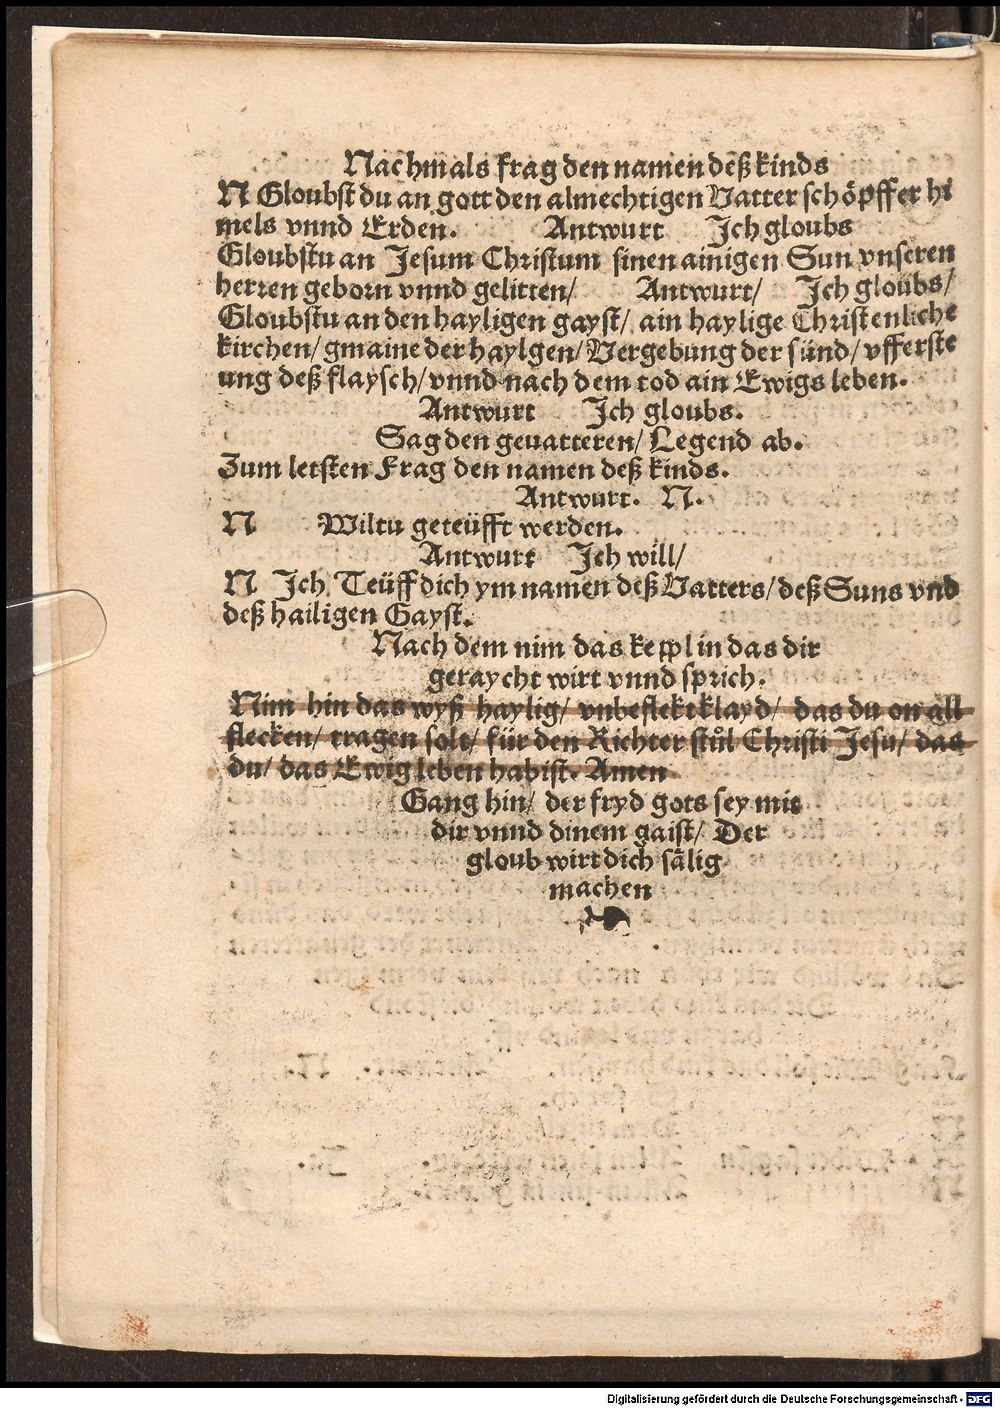 Nachmals frag den namen deß kinds
N Gloubst du an gott den almechtigen Vatter schöpffer hi
mels vnnd Erden. Antwurt Ich gloubs
Gloubstu an Jesum Christum sinen ainigen Sun vnseren
herren geborn vnnd gelitten/ Antwurt/ Ich gloubs/
Gloubstu an den hayligen gayst/ ain haylige Christenliche
kirchen/ gmaine der haylgen/ Vergebung der sünd/ vfferste
ung deß flaysch/ vnnd nach dem tod ain Ewigs leben.
Antwurt Ich gloubs.
Sag den geuatteren/ Legend ab.
Zum letsten Frag den namen deß kinds.
Antwurt. N.
N Wiltu geteüfft werden.
Antwurt Ich will/
N Ich Teüff dich ym namen deß Vatters/ deß Suns vnd
deß hailigen Gayst.
Nach dem nim das kepplin das dir
geraycht wirt vnnd sprich.
Nim hin das wyß haylig/ vnbeflekt klayd/ das du on all
flecken/ tragen solt/ für den Richter stůl Christi Jesu/ das
du/ das Ewig leben habist. Amen
Gang hin/ der fryd gots sey mit
dir vnnd dinem gaist/ Der
gloub wirt dich sälig
machen
Digitalisierung gefördert durch die Deutsche Forschungsgemeinschaft - DFG